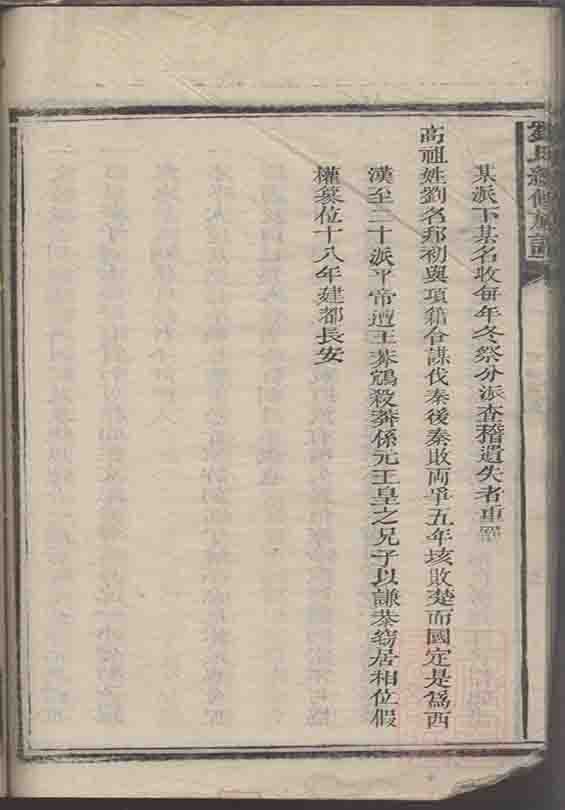 劉氏續修族譜
某派下某名收每年冬祭分派查稽遺失者重罪
高祖姓劉名邦初與項籍合謀伐秦後秦敗両爭五年垓敗楚而國定是爲西
漢至二十派平帝遭王莽鴆殺莽係元王皇之兄子以謙恭窃居相位假
權篡位十八年建都長安